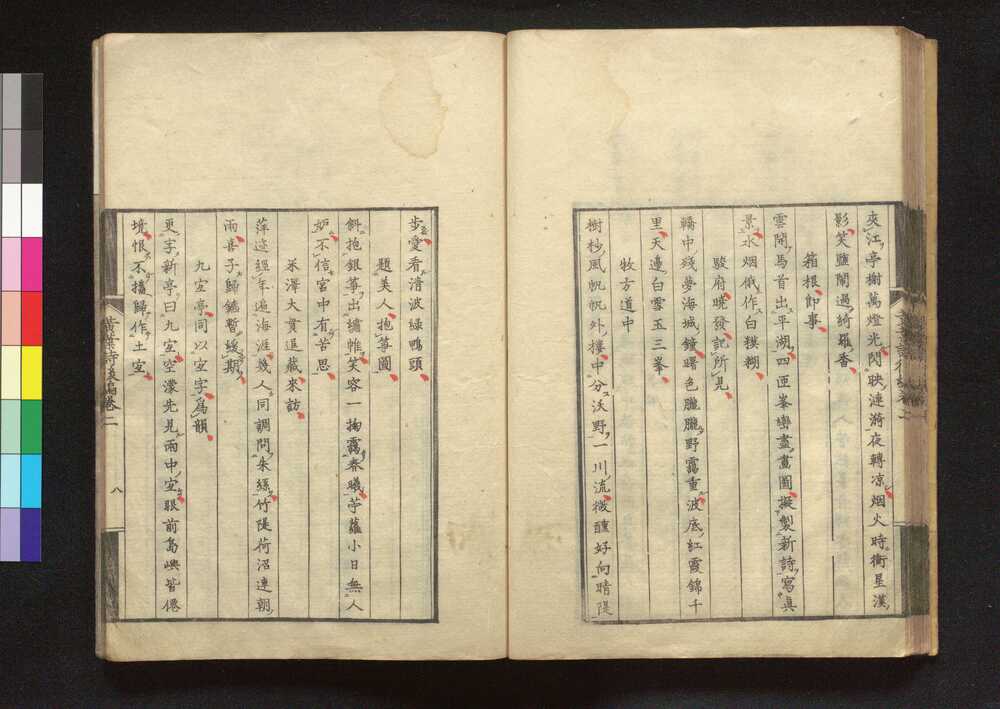 夾江亭榭萬燈光閃映漣漪夜轉凉烟火時衝星漢
影笑鹽閙過綺羅香
箱根即事
雲開馬首出平湖四匝峯巒盡畫圖擬製新詩寫真
景水烟俄作白糢糊
駿府曉發記所見
轎中殘夢海城鐘曙色朧朧野靄重波底紅霞錦千
里天邊白雲玉三峯
牧方道中
樹杪風帆帆外樓中分沃野一川流微醺好向晴隄
步愛看清波綠鴨頭
題美人抱箏圖
斜抱銀箏出繡帷笑容一掬靄春曦苧蘿小日無人
妒不信宮中有苦思
米澤大貫退藏來訪
萍迹經年遍海涯幾人同調問朱絲竹隄荷沼連朝
雨喜子歸鑣暫緩期
九室亭同以室字爲韻
更字新亭曰九室空濛先見雨中室眼前島嶼皆僊
境恨不攜歸作土室
黃葉詩後編卷二
八